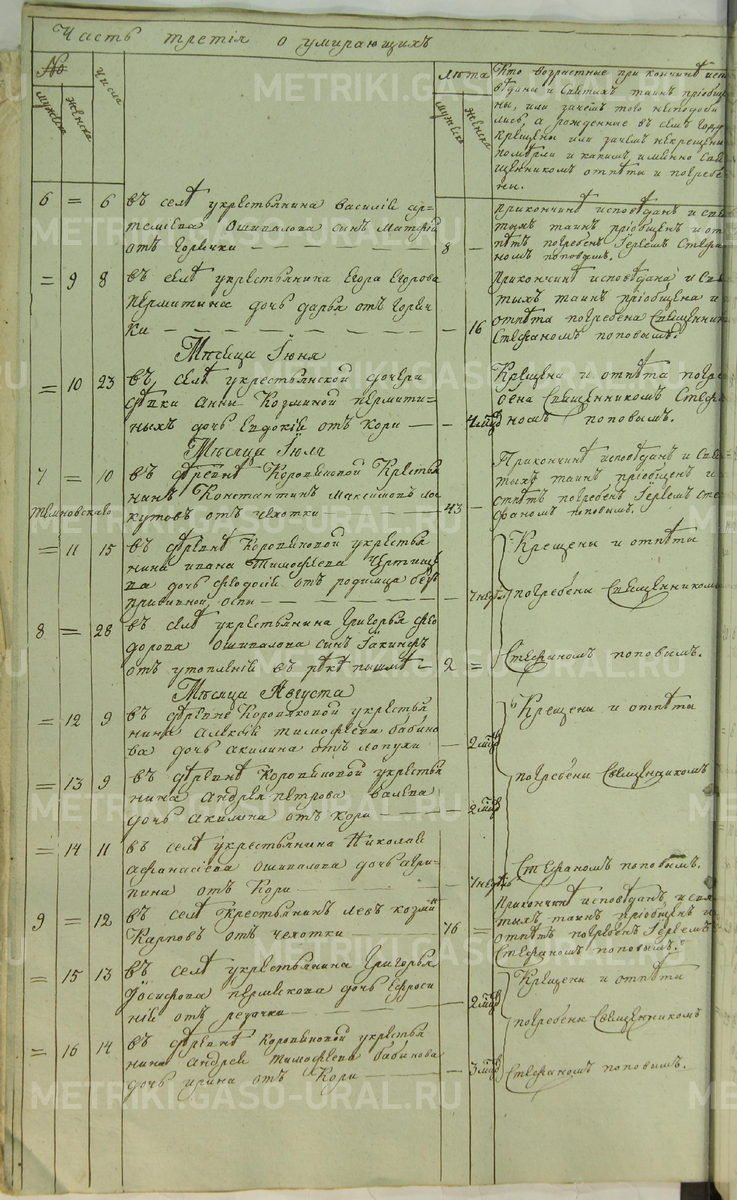 Часть третія о умирающихъ
№
мужеска
женска
числа
лѣта
мужеска
женска
Кто возрастные при кончинѣ испо
вѣданы и Святыхъ таинъ пріобще
ны, или зачемъ того несподоби
лись, а рожденные въ семъ году
крещены или зачемъ некрещены
померли и какимъ именно Свя
щенникомъ отпѣты и погребе
ны.
6 = 6 въ селѣ укрестьянина василія ар=
темьева Ошивалова сынъ
отъ Горячки — 8 —
При кончинѣ исповѣданъ и свя
тыхъ таинъ пріобщенъ и от
пѣтъ погребенъ Іереемъ Стефа
номъ поповымъ.
= 9 8 въ селѣ укрестьянина Егора Егорова
пермитина дочь дарья отъ Горяч
ки — — 16
При кончинѣ исповѣдана и Свя
тыхъ таинъ пріобщена и
отпѣта погребена Священник
Стефаномъ поповымъ.
Мѣсяца Іюня
= 10 23 въ селѣ укрестьянской дочери
дѣвки Анны Козминой пермити=
ныхъ дочь Евдокія отъ кори — — 4 мѣс
Крещена и отпѣта погре
бена Священникомъ Стефа
номъ поповымъ.
Мѣсяца Іюля
7 = 10 въ деревнѣ Коропяковой Кресть
нинъ Константинъ Максимовъ ло
темновскаго кутовъ отъ чехотки — 43 —
При кончинѣ исповѣданъ и свя
тыхъ таинъ пріобщенъ и
отпѣтъ погребенъ Іереемъ сте
фаномъ поповымъ.
= 11 15 въ деревнѣ Коропяковой укрестья
нина ивана Тимофеева
ва дочь феодосія отъ родимца
оспы — — 7 недѣль
Крещены и отпѣты
погребены Священникомъ
8 = 28 въ селѣ укрестьянина Григорья фео
дорова Ошивалова сынъ Іакинфъ
отъ утопленія въ рѣкѣ пышмѣ — 2 =
Стефаномъ поповымъ.
Мѣсяца Августа
= 12 9 въ деревнѣ Коропяковой укрестья
нина Алексія тимофеева бабино
ва дочь акилина отъ лопухи — 2 мѣс
Крещены и отпѣты
= 13 9 въ деревнѣ Коропяковой укрестья
нина андрея петрова валева
дочь акилина отъ кори — 2 мѣс
погребены Священникомъ
= 14 11 въ селѣ укрестьянина Николая
афанасіева Ошивалова дочь агри
пина отъ Кори — 7 недѣль
Стефаномъ поповымъ.
9 = 12 въ селѣ Крестьянинъ левъ козмин
Карповъ отъ чехотки 76 =
При кончинѣ исповѣданъ и свя
тыхъ таинъ пріобщенъ и
отпѣтъ погребенъ Іереемъ
Стефаномъ поповымъ.
= 15 13 въ селѣ укрестьянина Григорья
Іосифова пермякова дочь Ефроси
нія отъ резачки — — 2 мѣс
Крещены и отпѣты
погребены Священникомъ
= 16 14 въ деревнѣ Коропяковой укрестья
нина андрея тимофеева бабинова
дочь ирина отъ Кори — 3 мѣс
Стефаномъ поповымъ.
METRIKI.GASO-URAL.RU